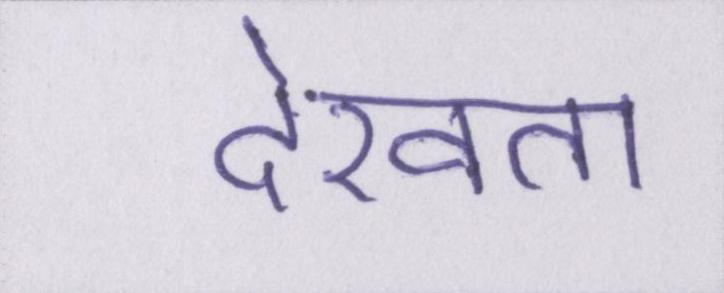 देखता